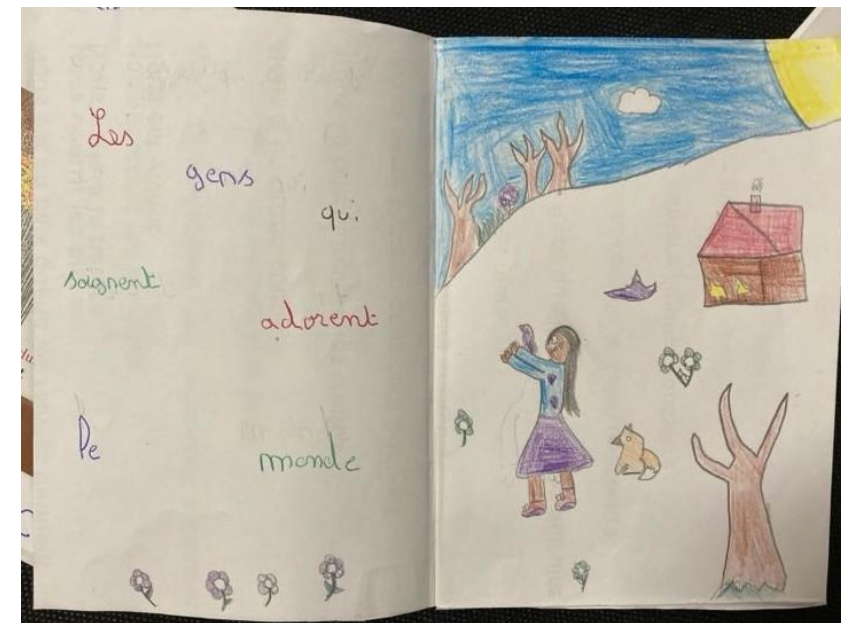 Les
gens
qui
soignent
adorent
le
monde